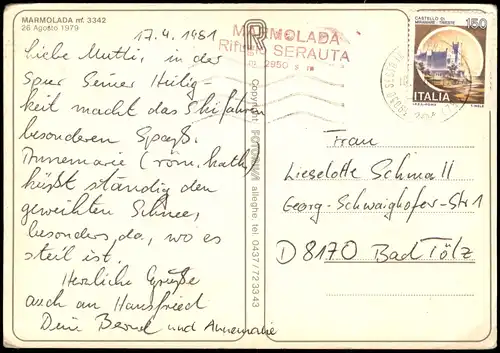 MARMOLADA mt. 3342
26 Agosto 1979
17.4.1981
Liebe Mutti, in der
Spur Seiner Heilig-
keit macht das Skifahren
besonderen Spaß.
Annemarie (röm. kath)
küßt ständig den
geweihten Schnee,
besonders da, wo es
steil ist.
Herzliche Grüße
auch an Hansfried
Deine Bernd und Annemarie
MARMOLADA
Rifugio SERAUTA
m. 2950 s m
Copyright: FOTO alleghe. tel. 0437/723343
CASTELLO DI
MIRAMARE - TRIESTE
150
ITALIA
Frau
Lieselotte Schmall
Georg-Schwaighofer-Str 1
D 8170 Bad Tölz